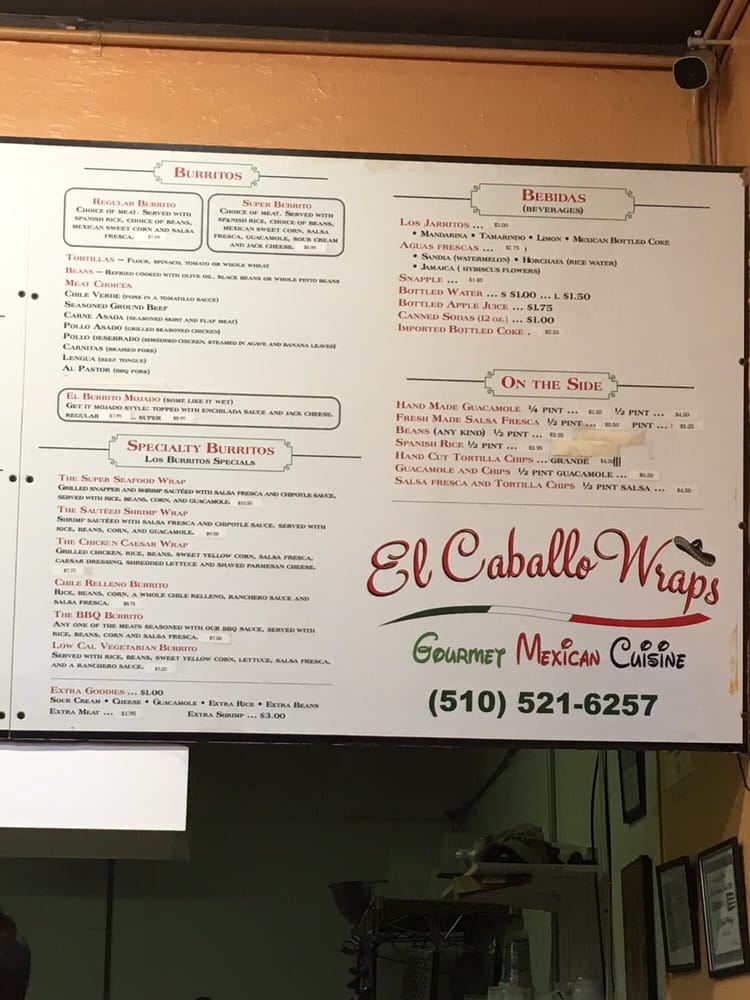 BURRITOS
REGULAR BURRITO
CHOICE OF MEAT. SERVED WITH
SPANISH RICE, CHOICE OF BEANS,
MEXICAN SWEET CORN AND SALSA
FRESCA. $7.99
SUPER BURRITO
CHOICE OF MEAT. SERVED WITH
SPANISH RICE, CHOICE OF BEANS,
MEXICAN SWEET CORN, SALSA
FRESCA, GUACAMOLE, SOUR CREAM
AND JACK CHEESE. $8.99
TORTILLAS – FLOUR, SPINACH, TOMATO OR WHOLE WHEAT
BEANS – REFRIED COOKED WITH OLIVE OIL, BLACK BEANS OR WHOLE PINTO BEANS
MEAT CHOICES
CHILE VERDE (PORK IN A TOMATILLO SAUCE)
SEASONED GROUND BEEF
CARNE ASADA (SEASONED SKIRT AND FLAP MEAT)
POLLO ASADO (GRILLED SEASONED CHICKEN)
POLLO DESEBRADO (SHREDDED CHICKEN, STEAMED IN AGAVE AND BANANA LEAVES)
CARNITAS (BRAISED PORK)
LENGUA (BEEF TONGUE)
AL PASTOR (BBQ PORK)
EL BURRITO MOJADO (SOME LIKE IT WET)
GET IT MOJADO STYLE: TOPPED WITH ENCHILADA SAUCE AND JACK CHEESE.
REGULAR $7.99 ... SUPER $8.99
SPECIALTY BURRITOS
LOS BURRITOS SPECIALS
THE SUPER SEAFOOD WRAP
GRILLED SNAPPER AND SHRIMP SAUTÉED WITH SALSA FRESCA AND CHIPOTLE SAUCE,
SERVED WITH RICE, BEANS, CORN, AND GUACAMOLE. $10.50
THE SAUTÉED SHRIMP WRAP
SHRIMP SAUTÉED WITH SALSA FRESCA AND CHIPOTLE SAUCE. SERVED WITH
RICE, BEANS, CORN, AND GUACAMOLE. $9.50
THE CHICKEN CAESAR WRAP
GRILLED CHICKEN, RICE, BEANS, SWEET YELLOW CORN, SALSA FRESCA,
CAESAR DRESSING, SHREDDED LETTUCE AND SHAVED PARMESAN CHEESE.
$7.75
CHILE RELLENO BURRITO
RICE, BEANS, CORN, A WHOLE CHILE RELLENO, RANCHERO SAUCE AND
SALSA FRESCA. $8.75
THE BBQ BURRITO
ANY ONE OF THE MEATS SEASONED WITH OUR BBQ SAUCE, SERVED WITH
RICE, BEANS, CORN AND SALSA FRESCA. $7.50
LOW CAL VEGETARIAN BURRITO
SERVED WITH RICE, BEANS, SWEET YELLOW CORN, LETTUCE, SALSA FRESCA,
AND A RANCHERO SAUCE. $7.25
EXTRA GOODIES ... $1.00
SOUR CREAM • CHEESE • GUACAMOLE • EXTRA RICE • EXTRA BEANS
EXTRA MEAT ... $1.95 EXTRA SHRIMP ... $3.00
BEBIDAS
(BEVERAGES)
LOS JARRITOS ... $2.00
• MANDARINA • TAMARINDO • LIMON • MEXICAN BOTTLED COKE
AGUAS FRESCAS ... $2.75
• SANDIA (WATERMELON) • HORCHATA (RICE WATER)
• JAMAICA (HYBISCUS FLOWERS)
SNAPPLE ...
BOTTLED WATER ... S $1.00 ... L $1.50
BOTTLED APPLE JUICE ... $1.75
CANNED SODAS (12 OZ.) ... $1.00
IMPORTED BOTTLED COKE . $2.25
ON THE SIDE
HAND MADE GUACAMOLE ¼ PINT ... $2.50 ½ PINT ... $4.50
FRESH MADE SALSA FRESCA ½ PINT ... $3.50 PINT ... $5.25
BEANS (ANY KIND) ½ PINT ... $2.95
SPANISH RICE ½ PINT ... $2.95
HAND CUT TORTILLA CHIPS ... GRANDE $4.50
GUACAMOLE AND CHIPS ½ PINT GUACAMOLE ... $6.50
SALSA FRESCA AND TORTILLA CHIPS ½ PINT SALSA ... $4.50
El Caballo Wraps
GOURMET MEXICAN CUISINE
(510) 521-6257